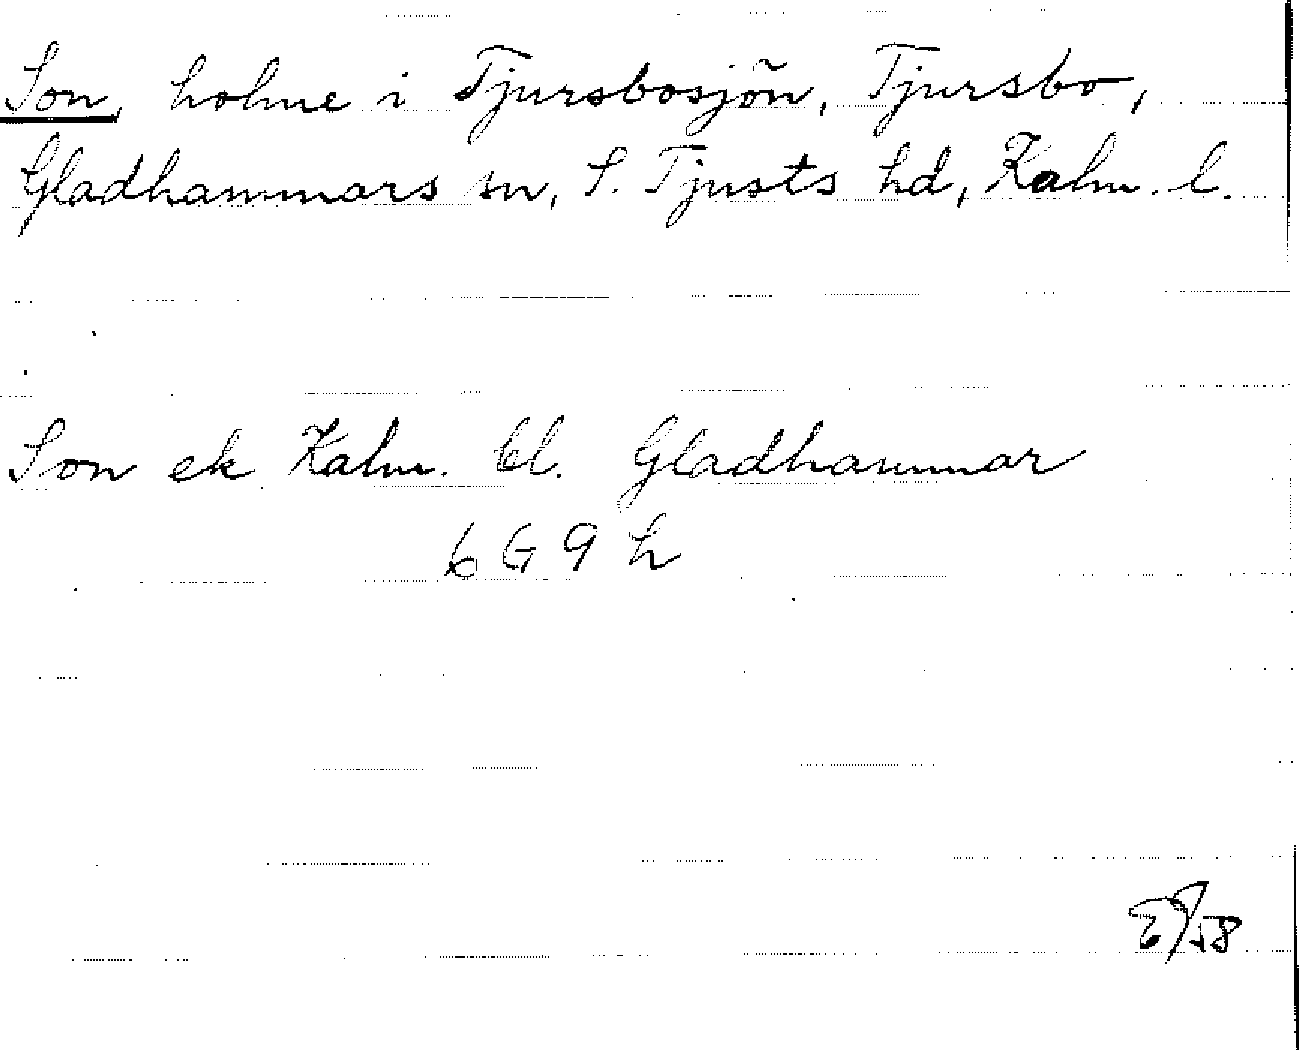 Son, holme i Tjursbosjön, Tjursbo,
Gladhammars sn, S. Tjusts hd, Kalm. l.
Son ek Kalm. bl. Gladhammar
6 G 9 h
58